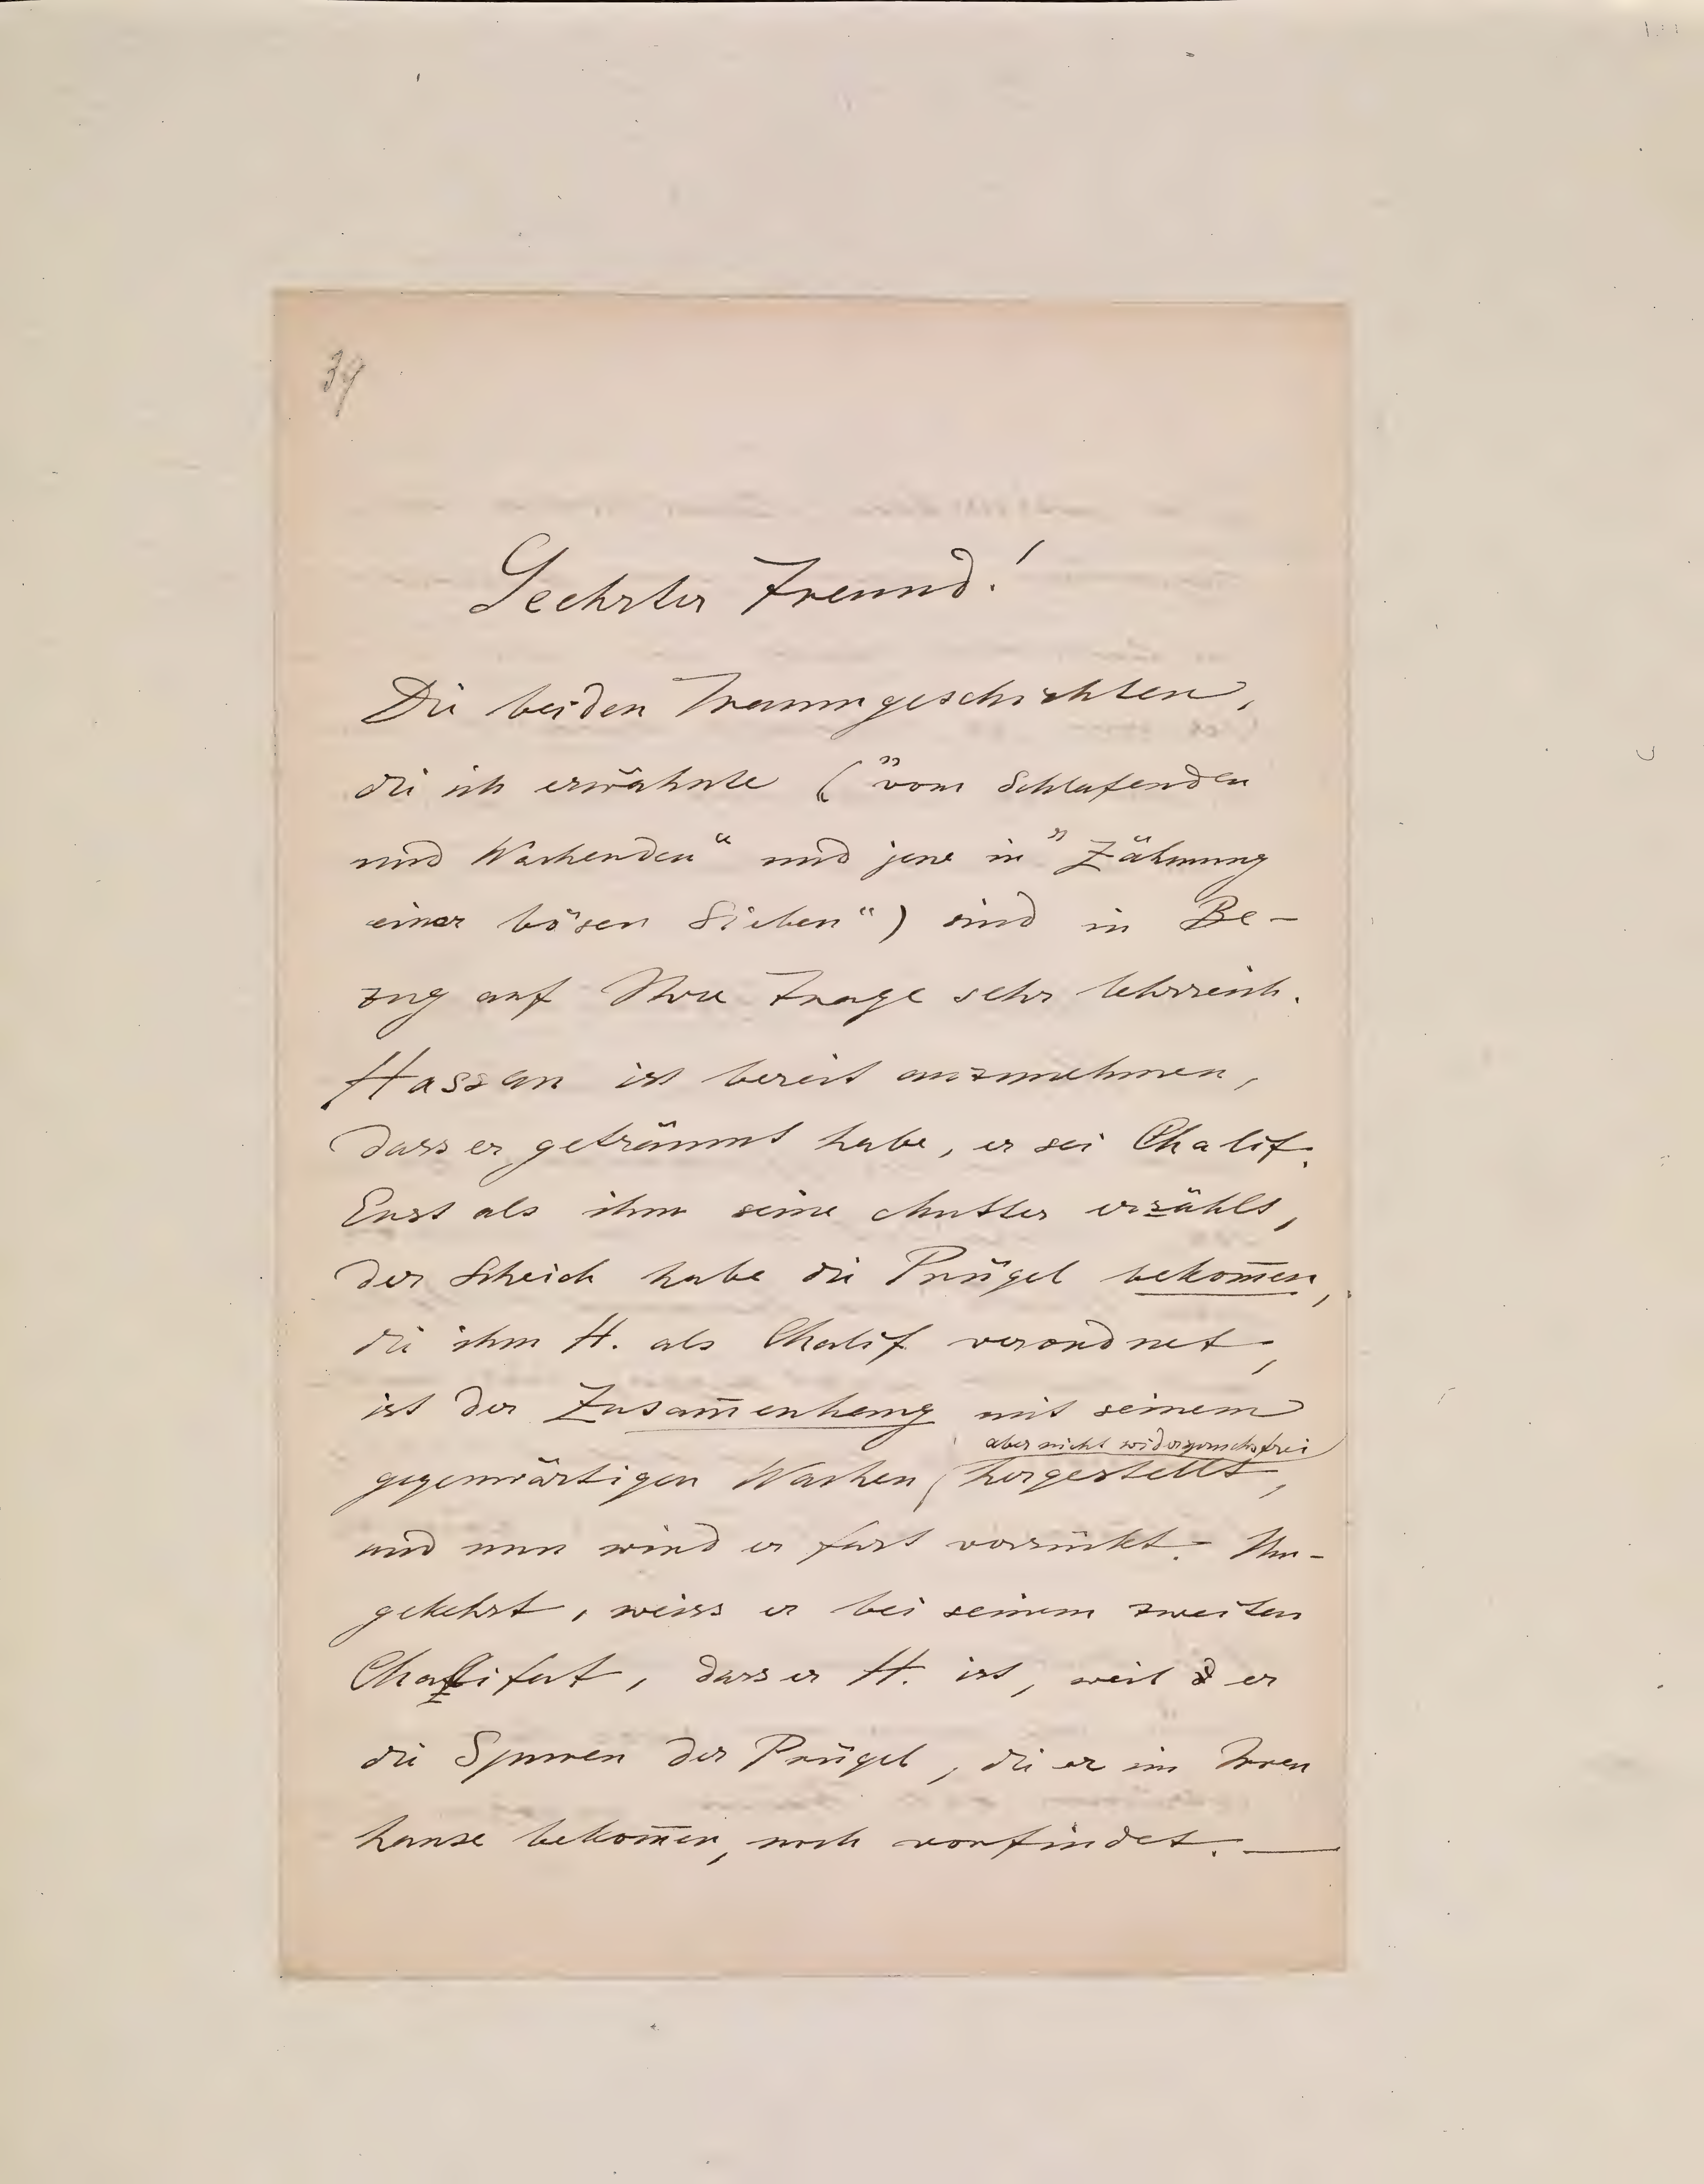 39
Geehrter Freund!
Die beiden Traumgeschichten,
die ich erwähnte („vom Schlafenden
und Wachenden“ und jene in „Zähmung
einer bösen Sieben“) sind in Be-
zug auf Ihre Frage sehr lehrreich.
Hassan ist bereit anzunehmen,
dass er geträumt habe, er sei Chalif.
Erst als ihm seine Mutter erzählt,
der Scheich habe die Prügel bekom̅en,
die ihm H. als Chalif verordnet,
ist der Zusam̅enhang mit seinem
aber nicht widerspruchsfrei
gegenwärtigen Wachen hergestellt,
und nun wird er fast verrückt. Um-
gekehrt, weiss er bei seinem zweiten
Chalifat, dass er H. ist, weil er
die Spuren der Prügel, die er im Irren
hause bekom̅en, noch vorfindet. —